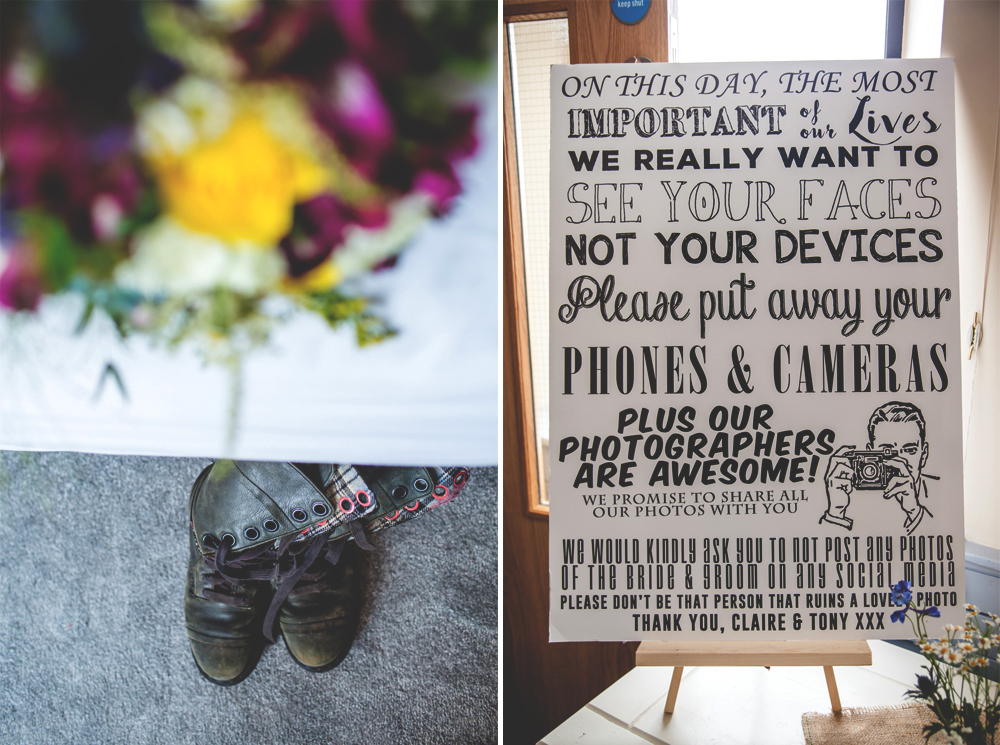 keep shut
ON THIS DAY, THE MOST
IMPORTANT of our Lives
WE REALLY WANT TO
SEE YOUR FACES
NOT YOUR DEVICES
Please put away your
PHONES & CAMERAS
PLUS OUR
PHOTOGRAPHERS
ARE AWESOME!
WE PROMISE TO SHARE ALL
OUR PHOTOS WITH YOU
We WOULD KINDLY ASK YOU TO NOT POST ANY PHOTOS
OF THE BRIDE & GROOM ON ANY SOCIAL MEDIA
PLEASE DON'T BE THAT PERSON THAT RUINS A LOVELY PHOTO
THANK YOU, CLAIRE & TONY XXX